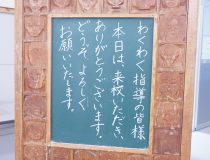 わくわく指導の皆様
本日は、来校いただき、
ありがとうございます。
どうぞ、よろしく
お願いいたします。